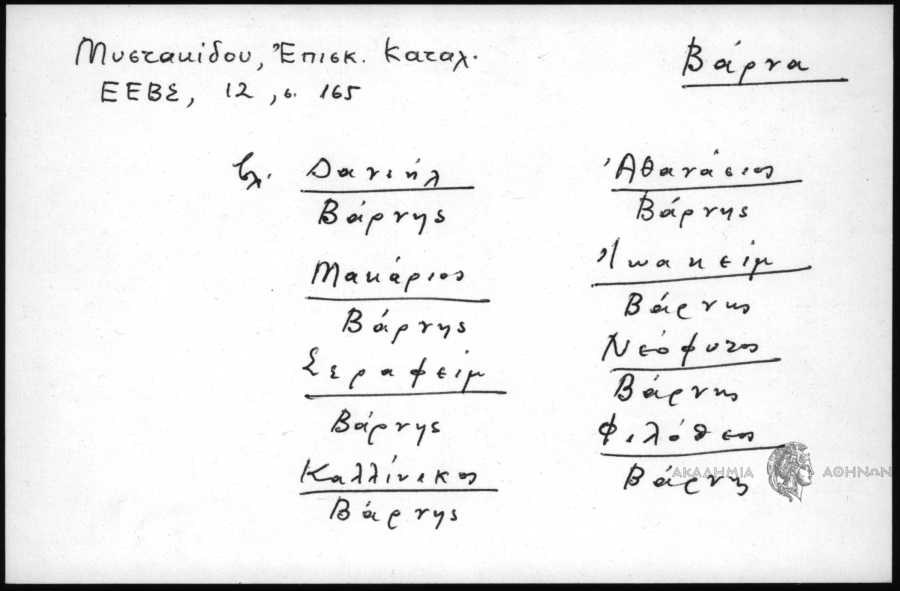 Μυστακίδου, Ἐπισκ. Καταλ.
ΕΕΒΣ, 12, σ. 165
Βάρνα
βλ. Δανιήλ
Βάρνης
Μακάριος
Βάρνης
Σεραφείμ
Βάρνης
Καλλίνικος
Βάρνης
Ἀθανάσιος
Βάρνης
Ἰωακείμ
Βάρνης
Νεόφυτος
Βάρνης
Φιλόθεος
Βάρνης
ΑΚΑΔΗΜΙΑ ΑΘΗΝΩΝ